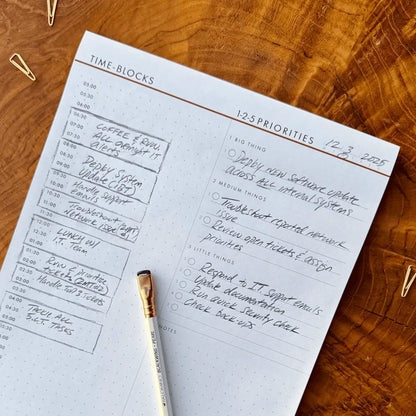 TIME-BLOCKS
05:00
05:30
06:00
06:30
07:00
07:30
08:00
08:30
09:00
09:30
10:00
10:30
11:00
11:30
12:00
12:30
01:00
01:30
02:00
02:30
03:00
03:30
04:00
04:30
05:00
05:30
COFFEE & RVW.
ALL overnight IT
alerts
Deploy System
Update (1st)
Handle support
emails
Troubleshoot
Network issue
LUNCH W/
I.T. TEAM
RVW & prioritize
tickets
Handle top 3 tickets
TACKLE ALL
TASKS
1-2-5 PRIORITIES
12 3 2025
1 BIG THING
Deploy new software update
across ALL internal systems
2 MEDIUM THINGS
Troubleshoot reported network
issue
Review open tickets & assign
priorities
5 LITTLE THINGS
Respond to IT Support emails
Update documentation
Run quick security check
Check back-ups
NOTES